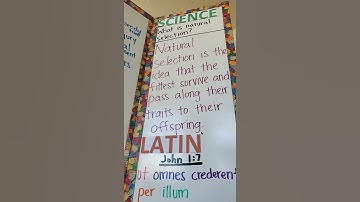 SCIENCE
What is natural
selection?
Natural
selection is the
idea that the
fittest survive and
pass along their
traits to their
offspring.
LATIN
John 1:7
ut omnes crederent
per illum